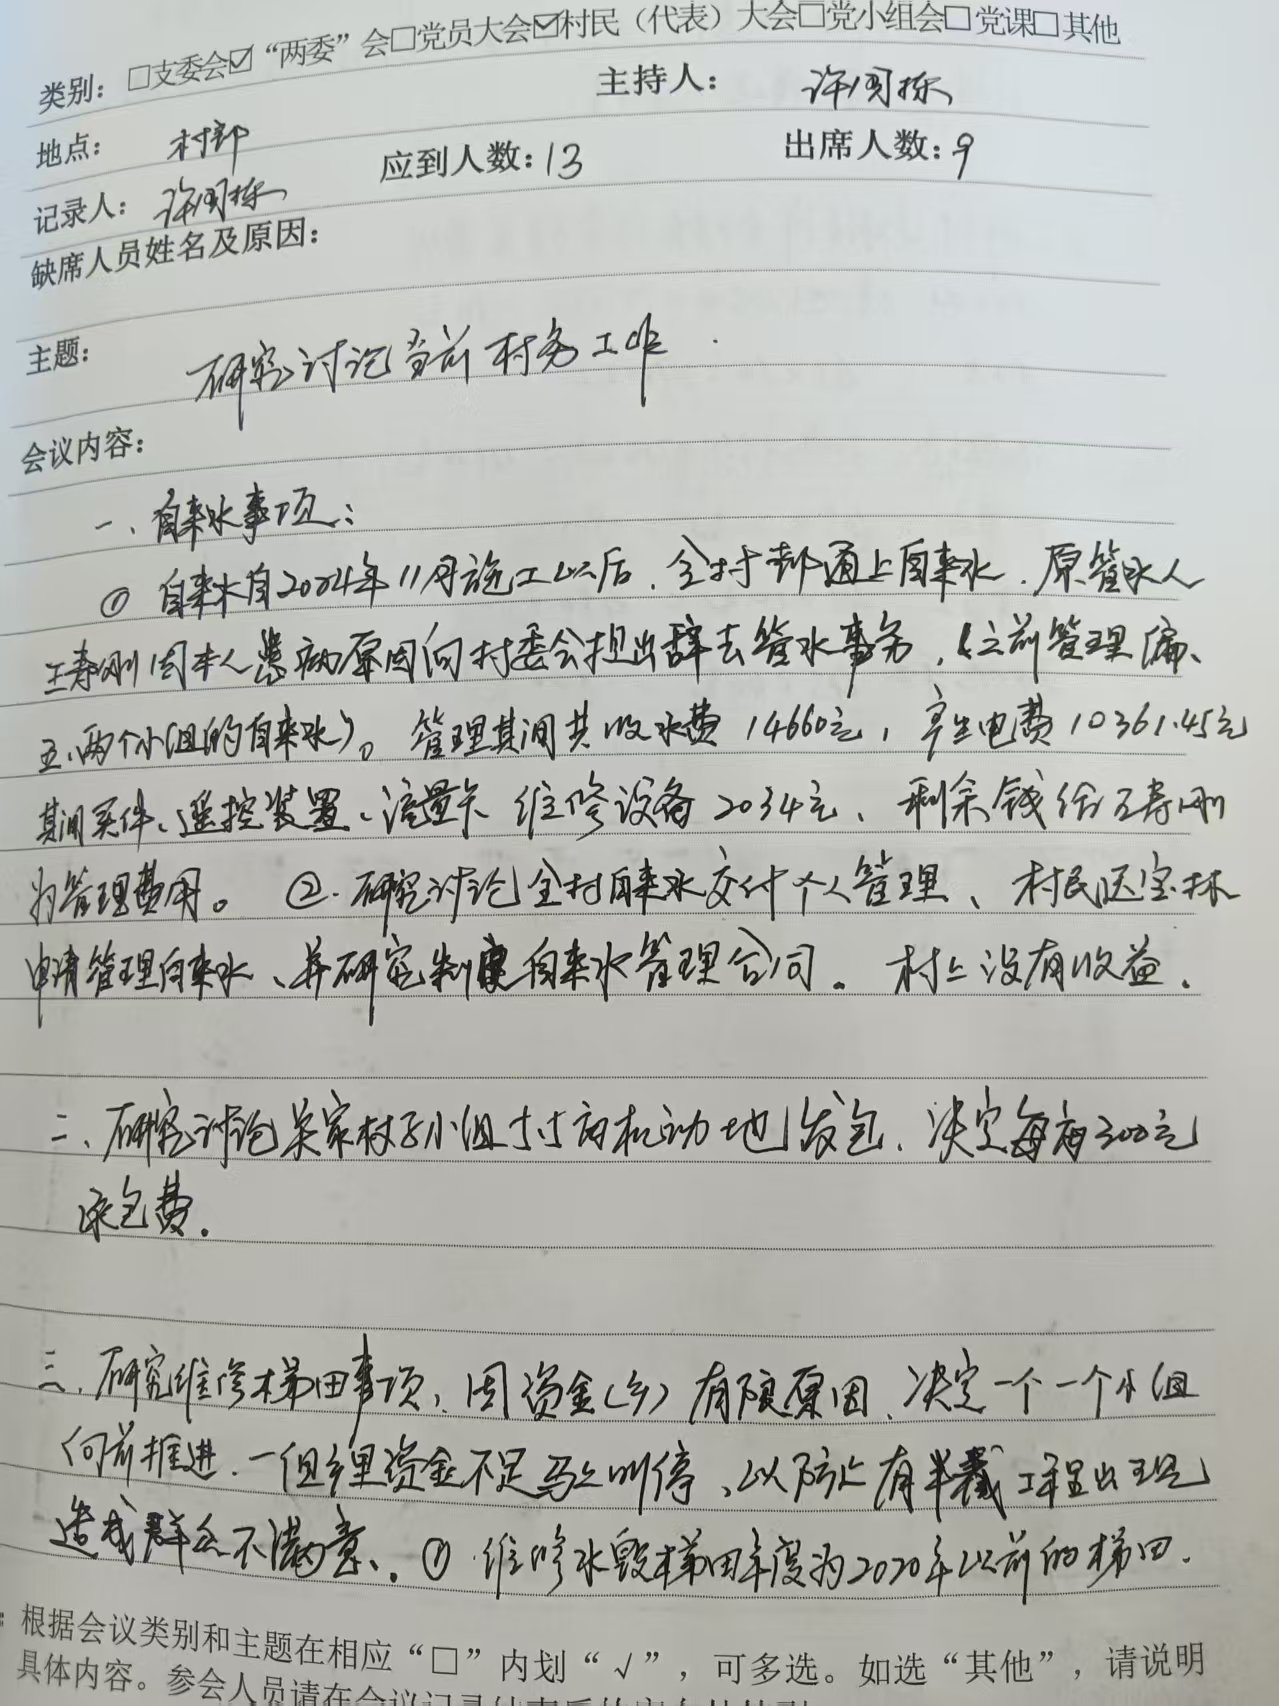 类别：□支委会☑“两委”会□党员大会☑村民（代表）大会□党小组会□党课□其他
主持人：许国栋
地点：村部
应到人数：13 出席人数：9
记录人：许国栋
缺席人员姓名及原因：
主题：研究讨论当前村务工作
会议内容：
一、自来水事项：
① 自来水自2004年11月施工以后，全村都通上自来水．原管水人
王寿刚因本人患病原因向村委会提出辞去管水事务，（之前管理
五、两个小组的自来水）。管理其间共收水费14660元，产生电费10361.45元
其间买件、遥控装置、流量卡 维修设备2034元、剩余钱给王寿刚
为管理费用。 ②．研究讨论全村自来水交付个人管理、村民宝林
申请管理自来水、并研究制定自来水管理合同。 村上没有收益．
二、研究讨论吴家村子小组 亩机动地发包．决定每亩300元
承包费．
三．研究维修梯田事项，因资金（乡）有限原因、决定一个一个小组
向前推进．一但乡里资金不足马上叫停、以防止有半截工程出现
造成群众不满意、．① 维修水毁梯田年度为2020年以前的梯田．
根据会议类别和主题在相应“□”内划“√”，可多选。如选“其他”，请说明
具体内容。参会人员请在会议记录